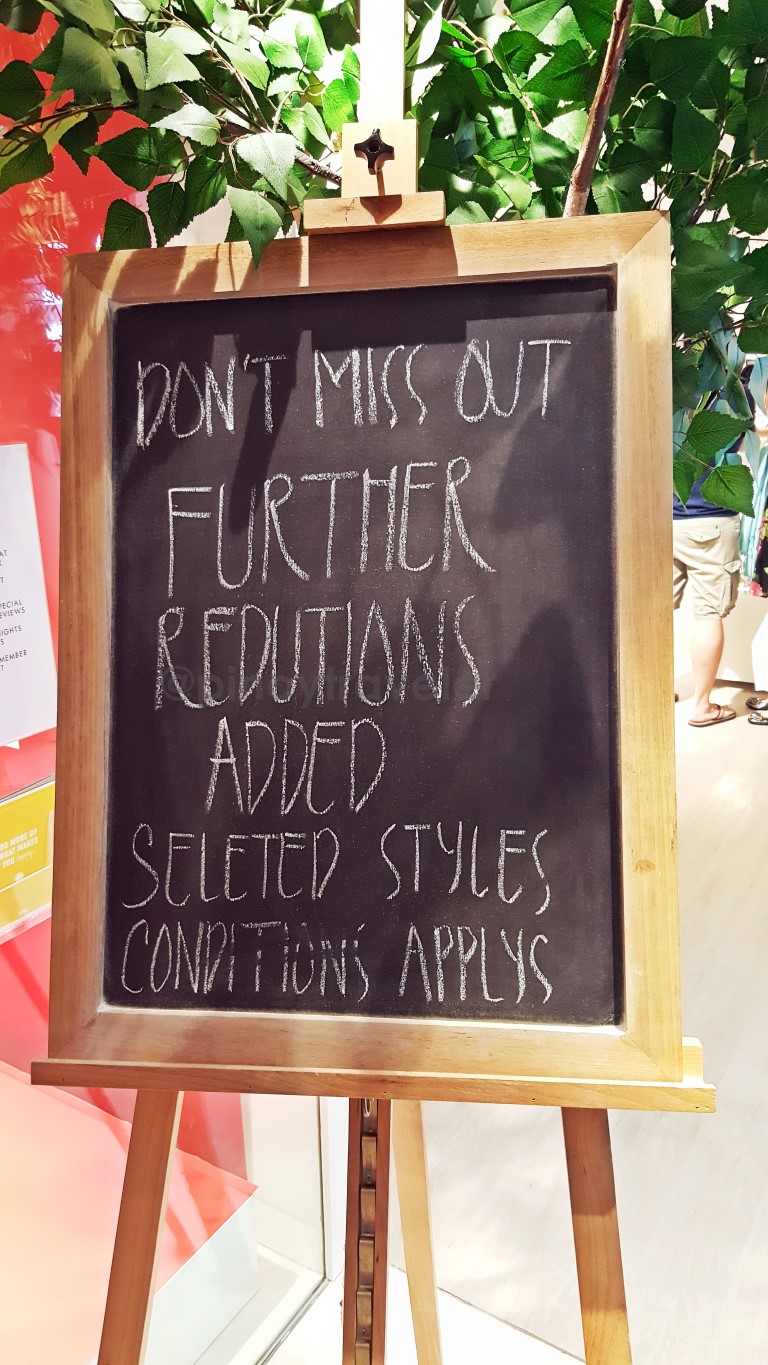 DON'T MISS OUT
FURTHER
REDUTIONS
ADDED
SELETED STYLES
CONDITIONS APPLYS
@pinoytraveler
PECIAL
EVIEWS
IGHTS
MEMBER
DO MORE OF
WHAT MAKES
YOU happy